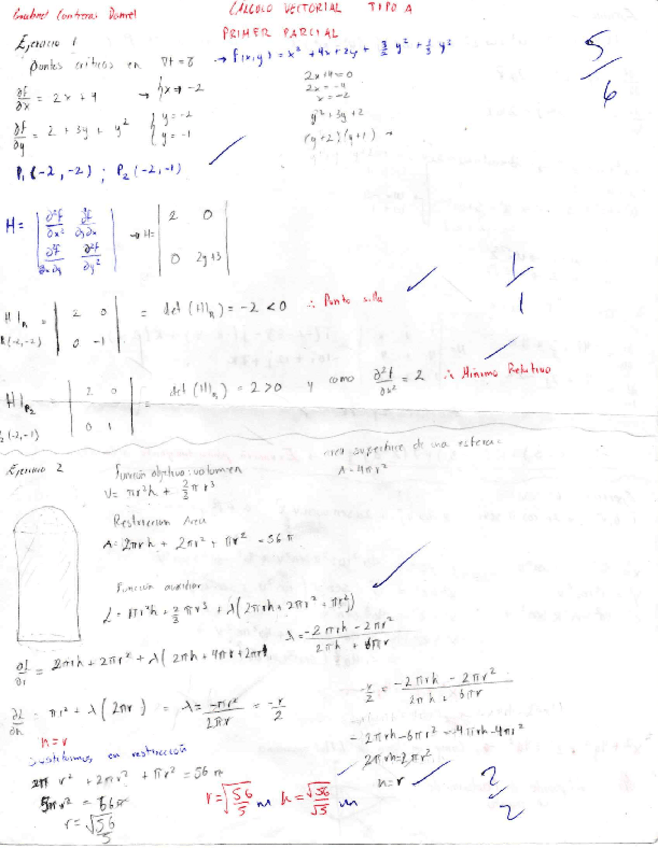 Contreras Daniel
CÁLCULO VECTORIAL TIPO A
PRIMER PARCIAL
5/6
Ejercicio 1
puntos críticos en ∇f = 0 → f(x,y) = x² + 4x + 2y + 3/2 y² + 1/3 y³
∂f/∂x = 2x + 4 → x = -2
2x+4=0
2x = -4
x = -2
∂f/∂y = 2 + 3y + y² { y = -2
y = -1
y² + 3y + 2
(y+2)(y+1)
P₁(-2, -2) ; P₂(-2, -1)
H = | ∂²f/∂x² ∂f/∂y∂x | → H = | 2 0 |
| ∂²f/∂x∂y ∂²f/∂y² | | 0 2y+3 |
1/1
H|P₁(-2,-2) = | 2 0 | = det(H|P₁) = -2 < 0 ∴ Punto silla
| 0 -1 |
H|P₂(-2,-1) = | 2 0 | = det(H|P₂) = 2 > 0 y como ∂²f/∂x² = 2 ∴ Mínimo Relativo
| 0 1 |
Ejercicio 2
Función objetivo: volumen
area superficie de una esfera:
V = πr²h + 2/3 πr³
A = 4πr²
Restricción Area
A = 2πrh + 2πr² + πr² = 56π
Función auxiliar
L = πr²h + 2/3 πr³ + λ(2πrh + 2πr² + πr²)
λ = (-2πrh - 2πr²)/(2πh + 6πr)
∂L/∂r = 2πrh + 2πr² + λ(2πh + 4πr + 2πr)
∂L/∂h = πr² + λ(2πr) = λ = -πr²/2πr = -r/2
-r/2 = (-2πrh - 2πr²)/(2πh + 6πr)
= 2πrh-6πr² = -4πrh-4πr²
2πrh-2πr²
h=r
h=r
Sustituimos en restricción
2π r² + 2πr² + πr² = 56π
5πr² = 56π
r = √56/5
r = √56/5 m h = √56/√5 m
2/2